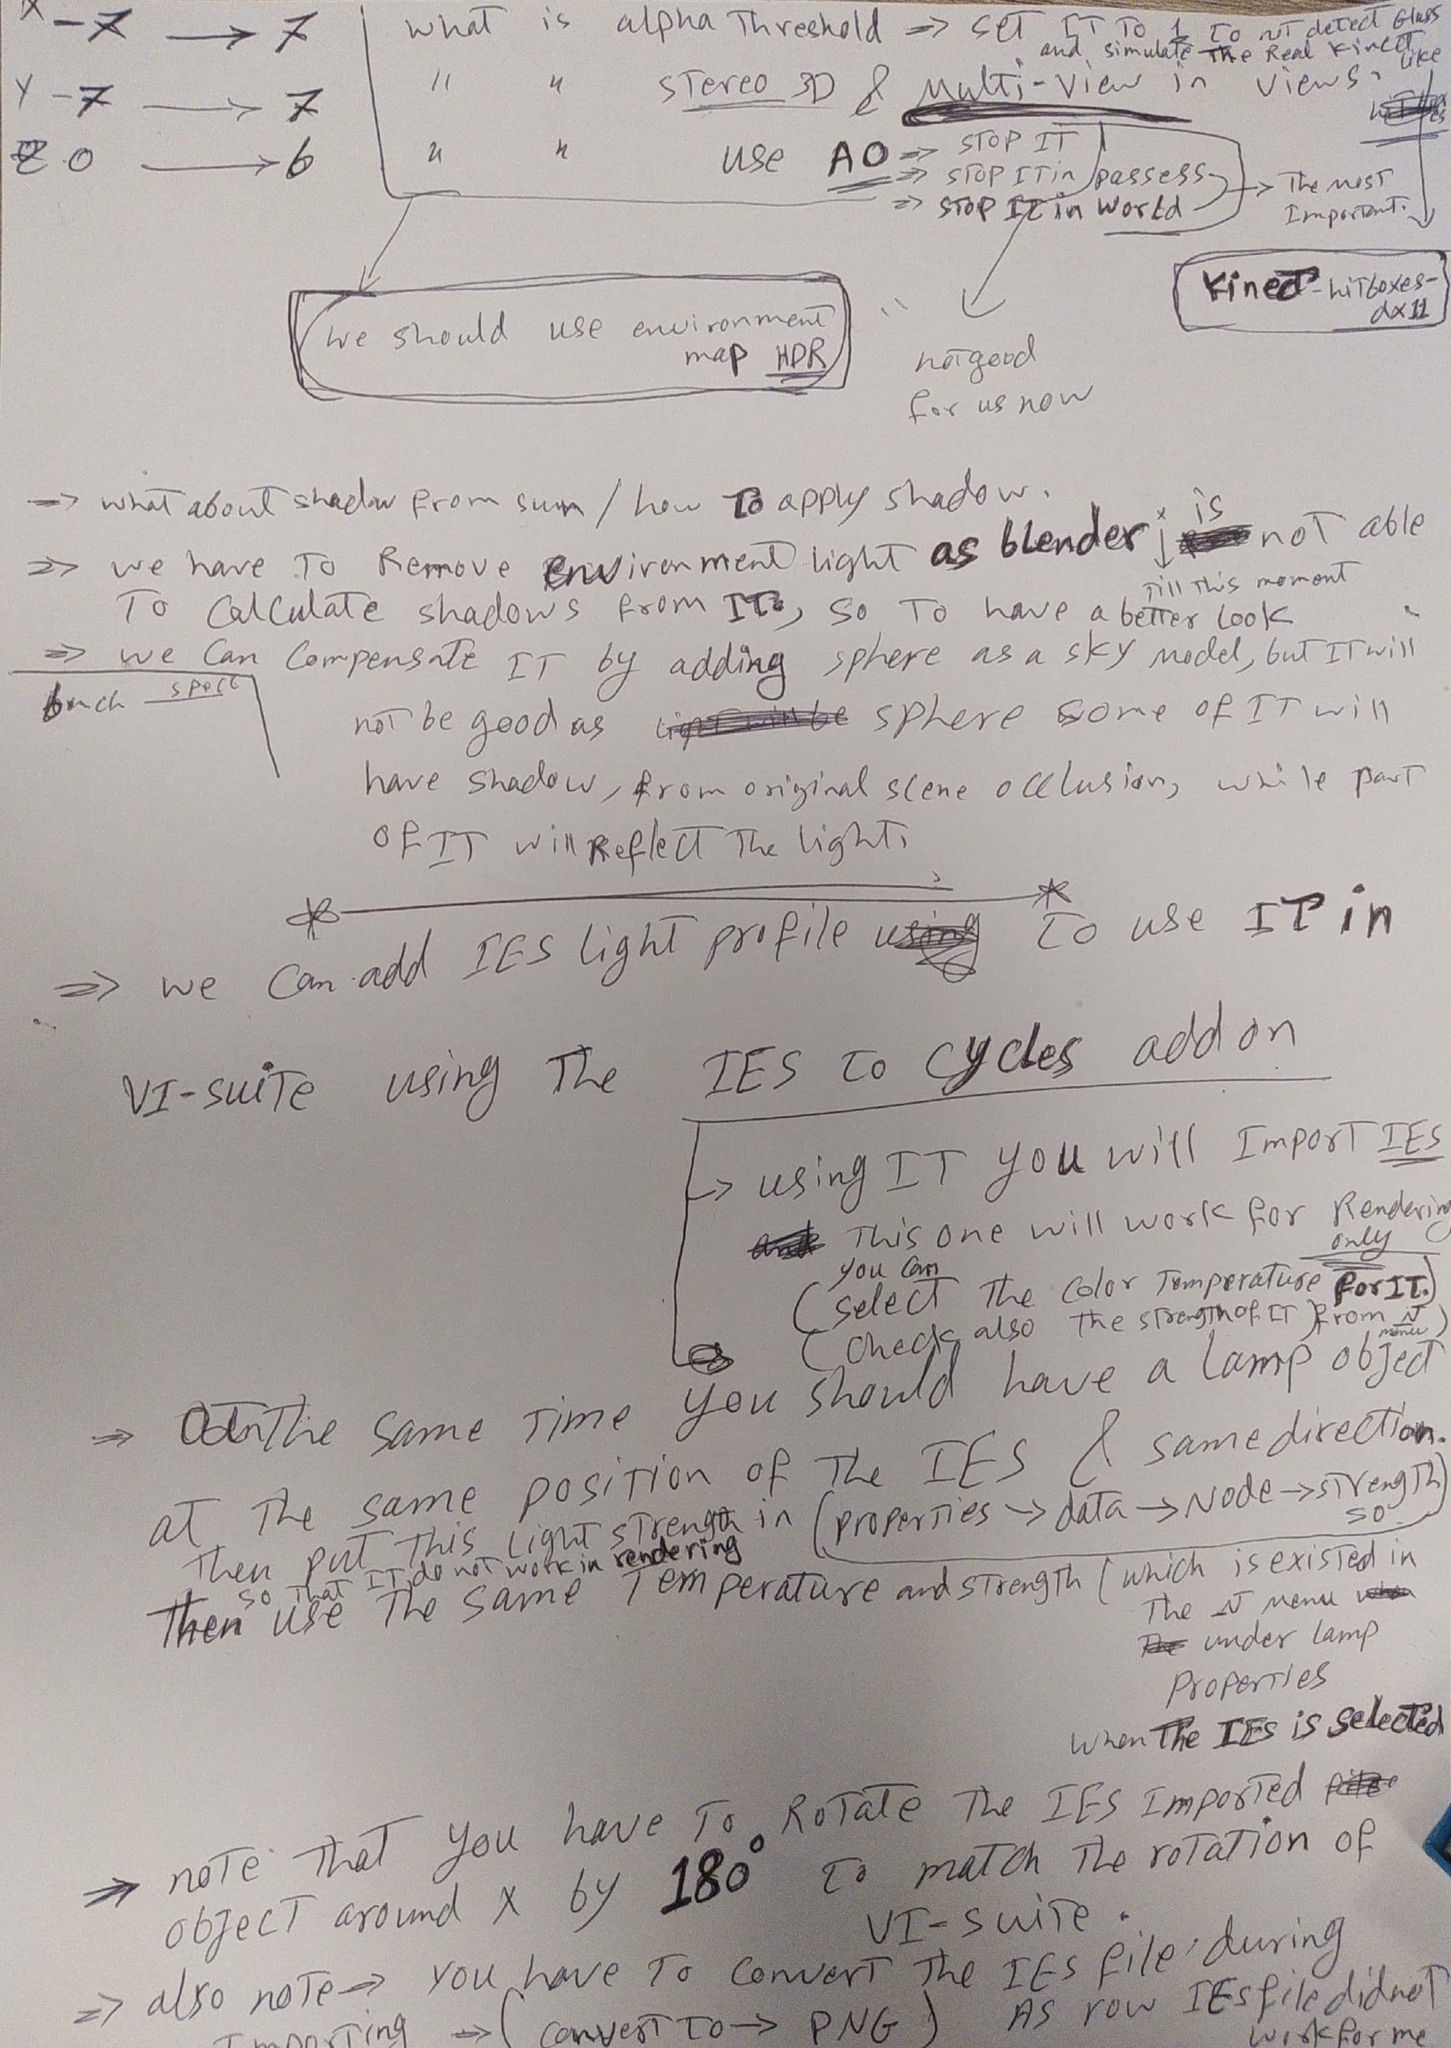 X -7 → 7
Y -7 → 7
Z 0 → 6
what is alpha Threshold ⇒ set IT To 1 To not detect Glass
and simulate The Real Kinect like
" " stereo 3D & Multi-view in views.
" " use AO ⇒ STOP IT
⇒ STOP IT in passess
⇒ STOP IT in World
→ The most
Important.
Kinect-hitboxes-
dx11
we should use environment
map HDR
not good
for us now
⇒ what about shadow from sun / how To apply shadow.
⇒ we have To Remove environment light as blender is not able
Till This moment
To calculate shadows from IT, so To have a better look
⇒ we can compensate IT by adding sphere as a sky model, but IT will
not be good as sphere some of IT will
have shadow, from original scene occlusion, while part
of IT will Reflect The light.
⇒ we can add IES light profile To use IT in
VI-suite using The IES To Cycles add on
→ using IT you will Import IES
This one will work for Rendering
only
(you can select The color Temperature for IT.)
(check also The strength of IT) from N
menu)
⇒ The same Time you should have a lamp object
at The same position of The IES & same direction.
Then put This light strength in (properties → data → Node → strength)
so
so That IT do not work in rendering
Then use The same Temperature and strength (which is existed in
The N menu
under lamp
properties
when The IES is selected
⇒ note That you have To Rotate The IES Imported
object around x by 180° To match The rotation of
VI-suite.
⇒ also note → you have To convert The IES file during
Importing ⇒ (convert To → PNG) As row IES file did not
work for me